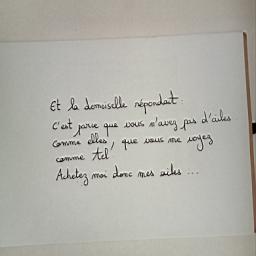 Et la demoiselle répondait :
C'est parce que vous n'avez pas d'ailes
comme elles, que vous me voyez
comme tel
Achetez moi donc mes ailes ...